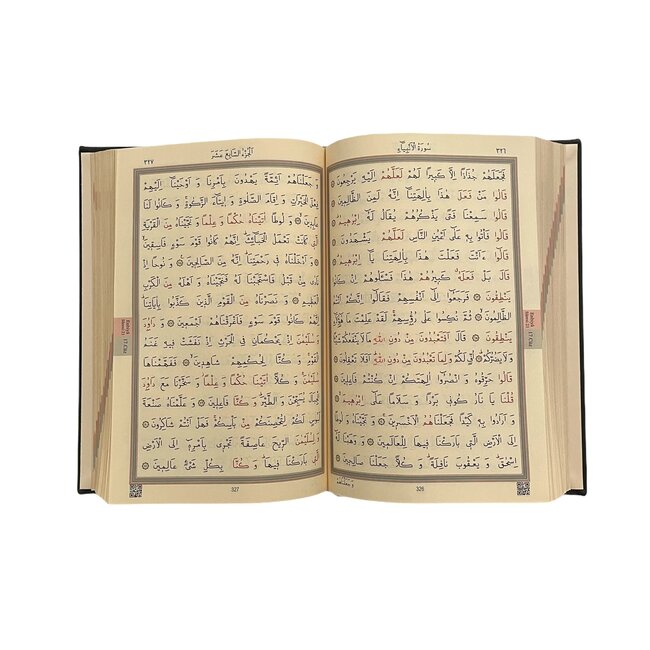 ٣٢٦ سُورَةُ الْاَنْبِيَاءِ
فَجَعَلَهُمْ جُذَاذًا اِلَّا كَبِيرًا لَهُمْ لَعَلَّهُمْ اِلَيْهِ يَرْجِعُونَ
قَالُوا مَنْ فَعَلَ هٰذَا بِاٰلِهَتِنَا اِنَّهُ لَمِنَ الظَّالِمِينَ
قَالُوا سَمِعْنَا فَتًى يَذْكُرُهُمْ يُقَالُ لَهُ اِبْرٰهِيمُ
قَالُوا فَأْتُوا بِهِ عَلٰى اَعْيُنِ النَّاسِ لَعَلَّهُمْ يَشْهَدُونَ
قَالُوا ءَاَنْتَ فَعَلْتَ هٰذَا بِاٰلِهَتِنَا يَا اِبْرٰهِيمُ
قَالَ بَلْ فَعَلَهُ كَبِيرُهُمْ هٰذَا فَسْـَٔلُوهُمْ اِنْ كَانُوا
يَنْطِقُونَ فَرَجَعُوا اِلٰى اَنْفُسِهِمْ فَقَالُوا اِنَّكُمْ اَنْتُمُ
الظَّالِمُونَ ثُمَّ نُكِسُوا عَلٰى رُؤُسِهِمْ لَقَدْ عَلِمْتَ مَا هٰؤُلَاءِ
يَنْطِقُونَ قَالَ اَفَتَعْبُدُونَ مِنْ دُونِ اللّٰهِ مَا لَا يَنْفَعُكُمْ شَيْـًٔا
وَلَا يَضُرُّكُمْ اُفٍّ لَكُمْ وَلِمَا تَعْبُدُونَ مِنْ دُونِ اللّٰهِ اَفَلَا تَعْقِلُونَ
قَالُوا حَرِّقُوهُ وَانْصُرُوا اٰلِهَتَكُمْ اِنْ كُنْتُمْ فَاعِلِينَ
قُلْنَا يَا نَارُ كُونِي بَرْدًا وَسَلَامًا عَلٰى اِبْرٰهِيمَ
وَاَرَادُوا بِهِ كَيْدًا فَجَعَلْنَاهُمُ الْاَخْسَرِينَ وَنَجَّيْنَاهُ وَلُوطًا
اِلَى الْاَرْضِ الَّتِي بَارَكْنَا فِيهَا لِلْعَالَمِينَ وَوَهَبْنَا لَهُ
اِسْحٰقَ وَيَعْقُوبَ نَافِلَةً وَكُلًّا جَعَلْنَا صَالِحِينَ
وَجَعَلْنَاهُمْ
326
اَلْجُزْءُ السَّابِعُ عَشَرَ ٣٢٧
وَجَعَلْنَاهُمْ اَئِمَّةً يَهْدُونَ بِاَمْرِنَا وَاَوْحَيْنَا اِلَيْهِمْ
فِعْلَ الْخَيْرَاتِ وَاِقَامَ الصَّلٰوةِ وَاِيتَاءَ الزَّكٰوةِ وَكَانُوا لَنَا
عَابِدِينَ وَلُوطًا اٰتَيْنَاهُ حُكْمًا وَعِلْمًا وَنَجَّيْنَاهُ مِنَ الْقَرْيَةِ
الَّتِي كَانَتْ تَعْمَلُ الْخَبَائِثَ اِنَّهُمْ كَانُوا قَوْمَ سَوْءٍ فَاسِقِينَ
وَاَدْخَلْنَاهُ فِي رَحْمَتِنَا اِنَّهُ مِنَ الصَّالِحِينَ وَنُوحًا اِذْ
نَادٰى مِنْ قَبْلُ فَاسْتَجَبْنَا لَهُ فَنَجَّيْنَاهُ وَاَهْلَهُ مِنَ الْكَرْبِ
الْعَظِيمِ وَنَصَرْنَاهُ مِنَ الْقَوْمِ الَّذِينَ كَذَّبُوا بِاٰيَاتِنَا
اِنَّهُمْ كَانُوا قَوْمَ سَوْءٍ فَاَغْرَقْنَاهُمْ اَجْمَعِينَ وَدَاوُدَ
وَسُلَيْمٰنَ اِذْ يَحْكُمَانِ فِي الْحَرْثِ اِذْ نَفَشَتْ فِيهِ غَنَمُ
الْقَوْمِ وَكُنَّا لِحُكْمِهِمْ شَاهِدِينَ فَفَهَّمْنَاهَا
سُلَيْمٰنَ وَكُلًّا اٰتَيْنَا حُكْمًا وَعِلْمًا وَسَخَّرْنَا مَعَ دَاوُدَ
الْجِبَالَ يُسَبِّحْنَ وَالطَّيْرَ وَكُنَّا فَاعِلِينَ وَعَلَّمْنَاهُ صَنْعَةَ
لَبُوسٍ لَكُمْ لِتُحْصِنَكُمْ مِنْ بَأْسِكُمْ فَهَلْ اَنْتُمْ شَاكِرُونَ
وَلِسُلَيْمٰنَ الرِّيحَ عَاصِفَةً تَجْرِي بِاَمْرِهِ اِلَى الْاَرْضِ
الَّتِي بَارَكْنَا فِيهَا وَكُنَّا بِكُلِّ شَيْءٍ عَالِمِينَ
327